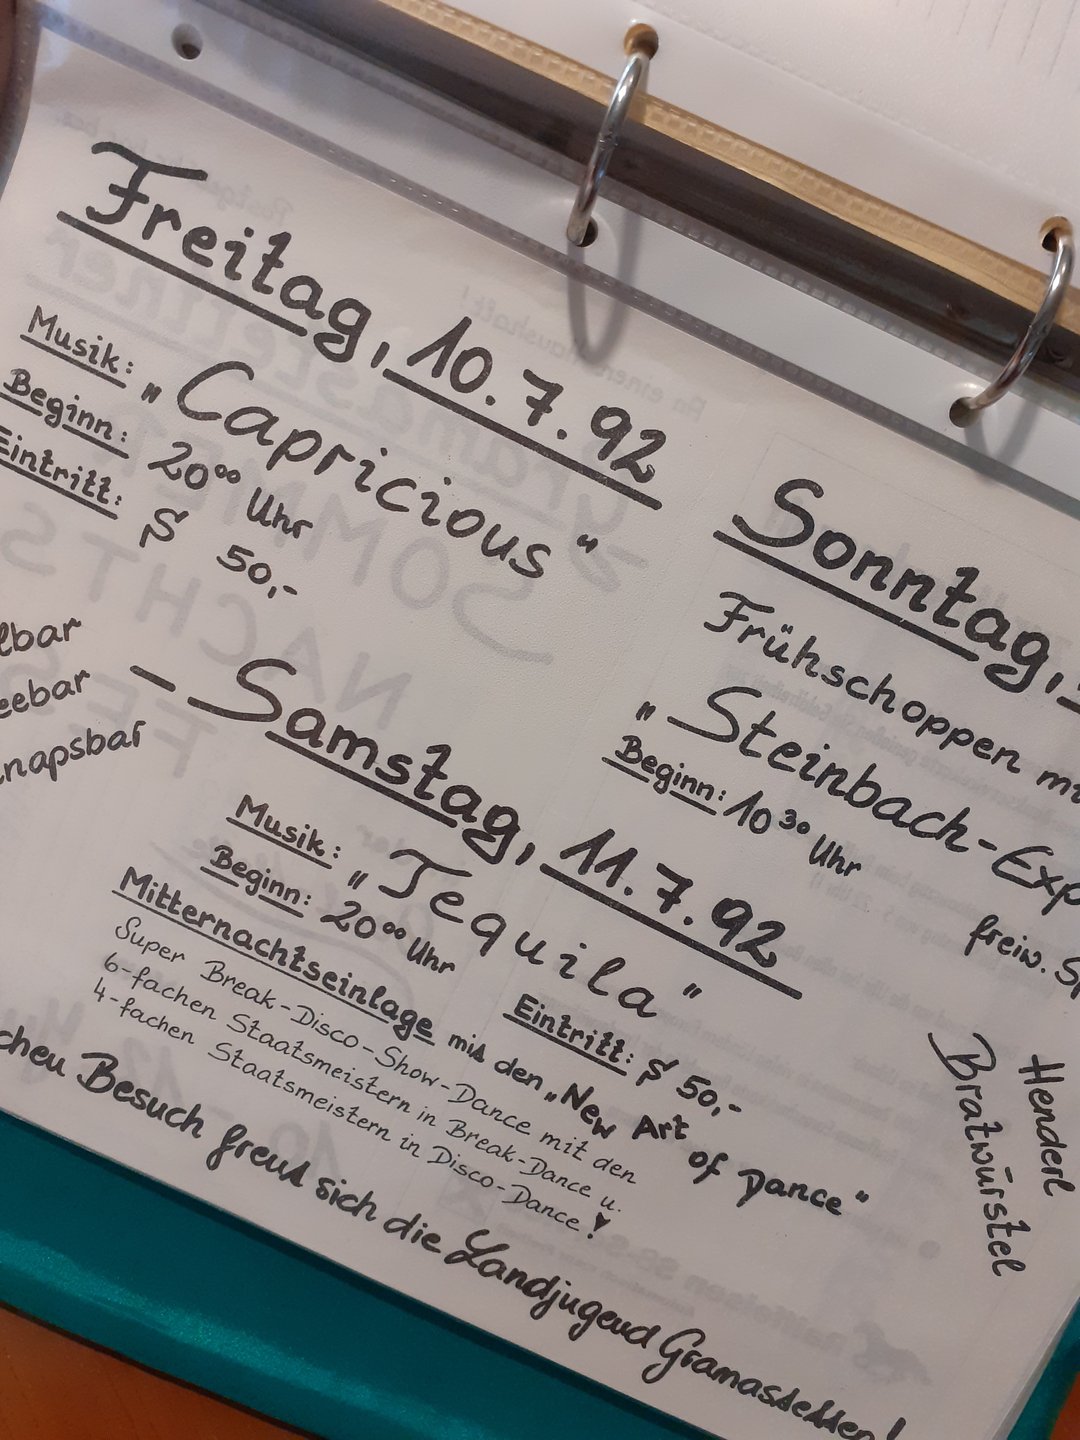 Freitag, 10.7.92
Musik: „Capricious"
Beginn: 20⁰⁰ Uhr
Eintritt: S 50,-
lbar
eebar
napsbar
- Samstag, 11.7.92
Musik: „Tequila"
Beginn: 20⁰⁰ Uhr
Eintritt: S 50,-
Mitternachtseinlage mit den „New Art of Dance"
Super Break-Disco-Show-Dance mit den
6-fachen Staatsmeistern in Break-Dance u.
4-fachen Staatsmeistern in Disco-Dance!
Sonntag,
Frühschoppen mi
„Steinbach-Exp
Beginn: 10³⁰ Uhr
freiw. Sp
Henderl
Bratwürstel
chen Besuch freut sich die Landjugend Gramastetten!